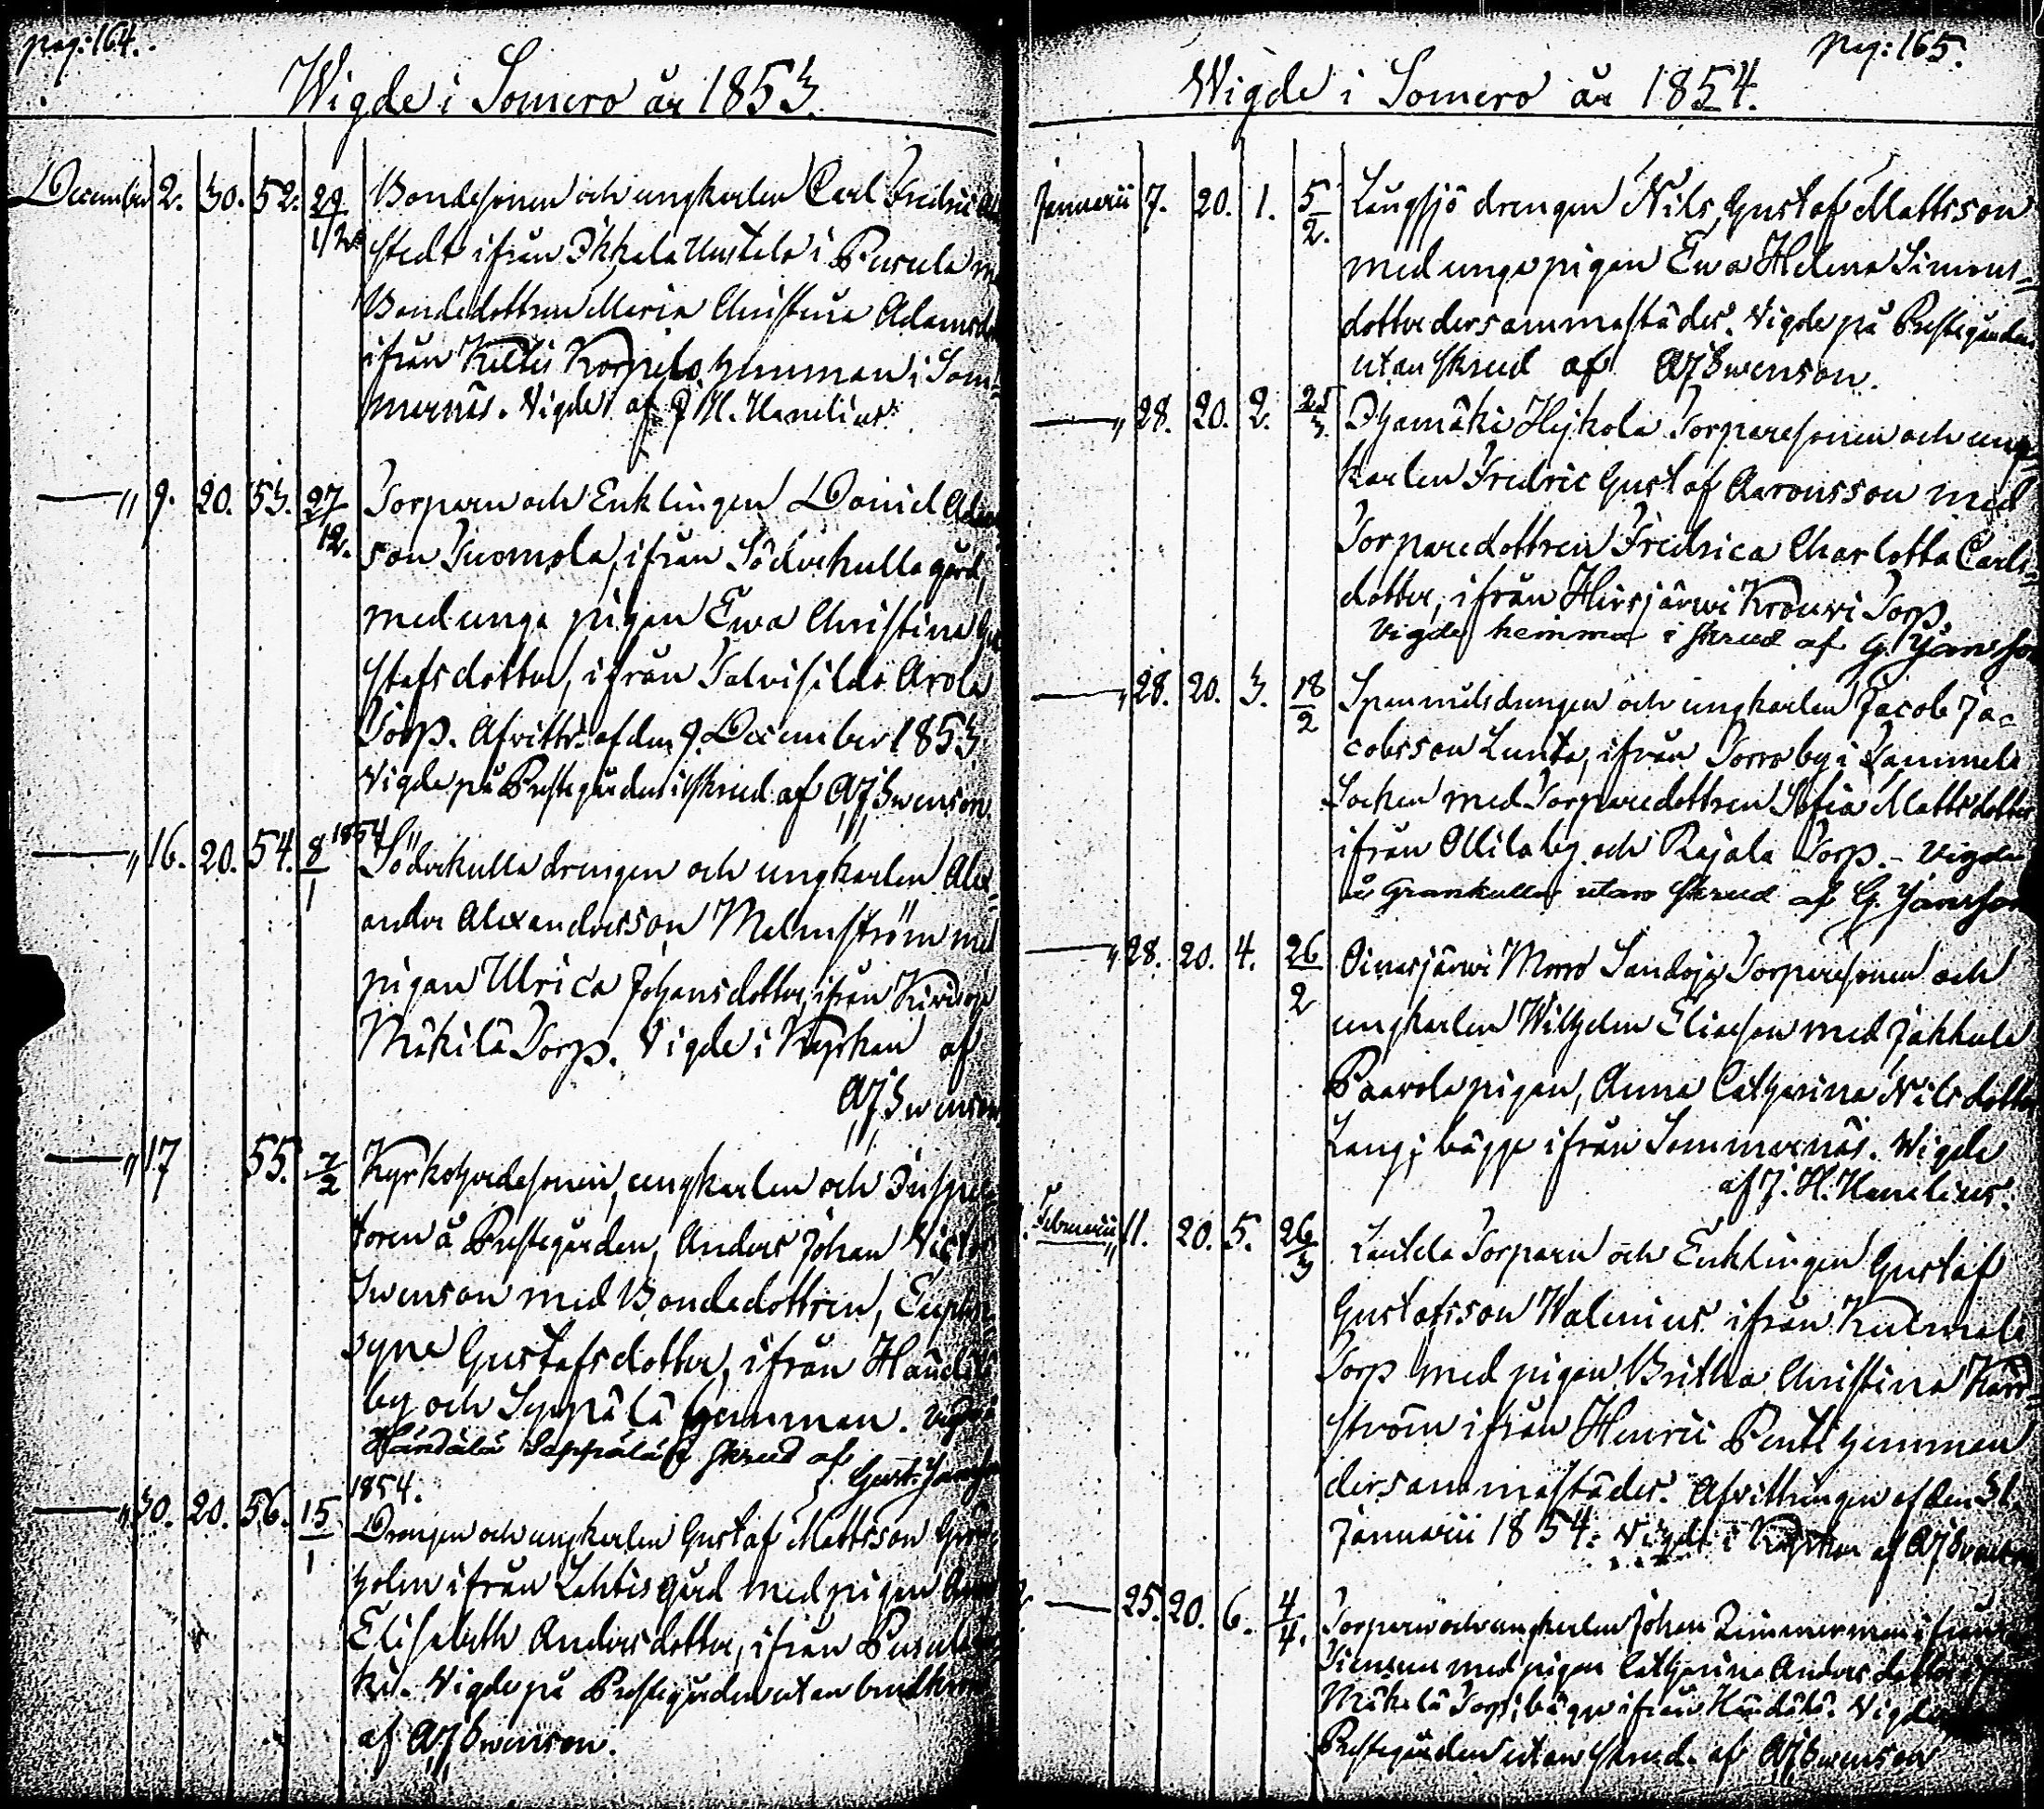 pag: 164.
Wigde i Somero år 1853.
December 2. 30. 52. 29/12 Bondesonen och ungkarlen Carl Fredric
stedt ifrån Ikkala Uustalo i Pusula
Bondedottren Maria Christina Adamsdo
ifrån Kultis Korpela hemman i Som=
mernäs. Vigde af J. H. Hamelius.
—〃 9. 20. 53. 27/12. Torparen och Enklingen Daniel Adam
son Tuomola, ifrån Söderkulla gård,
med unga pigan Ewa Christina Gu
stafsdotter, ifrån Talvisilda Arola
Torp. Afvittr. af den 9. December 1853.
Vigde på Prestegården i skrud af AJ Swenson.
—〃 16. 20. 54. 8/1 1854 Söderkulla drengen och ungkarlen Alex=
ander Alexandersson Malmström med
pigan Ulrica Johansdotter, ifrån
Mäkilä Torp. Vigde i Kyrkan af
AJ Swenson
—〃 17 55. 7/2 Kyrkoherdesonen, ungkarlen och Inspec
toren å Prestegården, Anders Johan Victor
Swenson med Bondedottren, Euphro
syne Gustafsdotter, ifrån Händälä
by och Seppälä hemman. Vigde i
Händälä Seppälä i skrud af
Gust. Jansson
—〃 30. 20. 56. 15/1 1854.
Drengen och ungkarlen Gustaf Mattsson
holm ifrån Lahtis gård med pigan
Elisabeth Andersdotter, ifrån
ki. Vigde på Prestegården utan brudkrona
af AJ Swenson.
pag: 165.
Wigde i Somero år 1854.
Januarii 7. 20. 1. 5/2. Långsjö drengen Nils Gustaf Mattsson
med unga pigan Ewa Helena Simons=
dotter dersammastädes. Vigde på Prestegården
utan skrud af AJ Swenson.
—〃 28. 20. 2. 25/3. Ihamäki Hejkola Torparesonen och ung
karlen Fredric Gustaf Aaronsson med
Torparedottren Fredrica Charlotta Carls=
dotter, ifrån Hirsjärwi Krouwi Torp.
Vigde hemma i skrud af G. Jansson
—〃 28. 20. 3. 18/2 Spannmålsdrengen och ungkarlen Jacob Ja=
cobsson Lunta, ifrån Torro by i Tammela
Socken med Torparedottren Sofia Mattsdotter
ifrån Ollila by och Rajala Torp. - Vigde
å Grankulla utan skrud af G. Jansson
—〃 28. 20. 4. 26/2 Oinasjärwi Morro Sandoja Torparesonen och
ungkarlen Wilhelm Eliasson med Jakkula
Paavola pigan, Anna Catharina Nilsdotter
Lang; bägge ifrån Sommernäs. Wigde
af J. H. Hamelius.
Februarii 11. 20. 5. 26/3 Lautela Torparen och Enklingen Gustaf
Gustafsson Walenius ifrån Kulmala
Torp med pigan Britha Christina
ström ifrån Henrii Pentt hemman
dersammastädes. Afvittringen af den 31
Januarii 1854. Vigde i Kyrkan af AJ Swenson
— 25. 20. 6. 4/4. Torparen och ungkarlen Johan Zimmerman ifrån
med pigan Catharina Andersdotter
Mäkelä Torp; bägge ifrån Händälä. Vigde
Prestegården utan skrud. af AJ Swenson